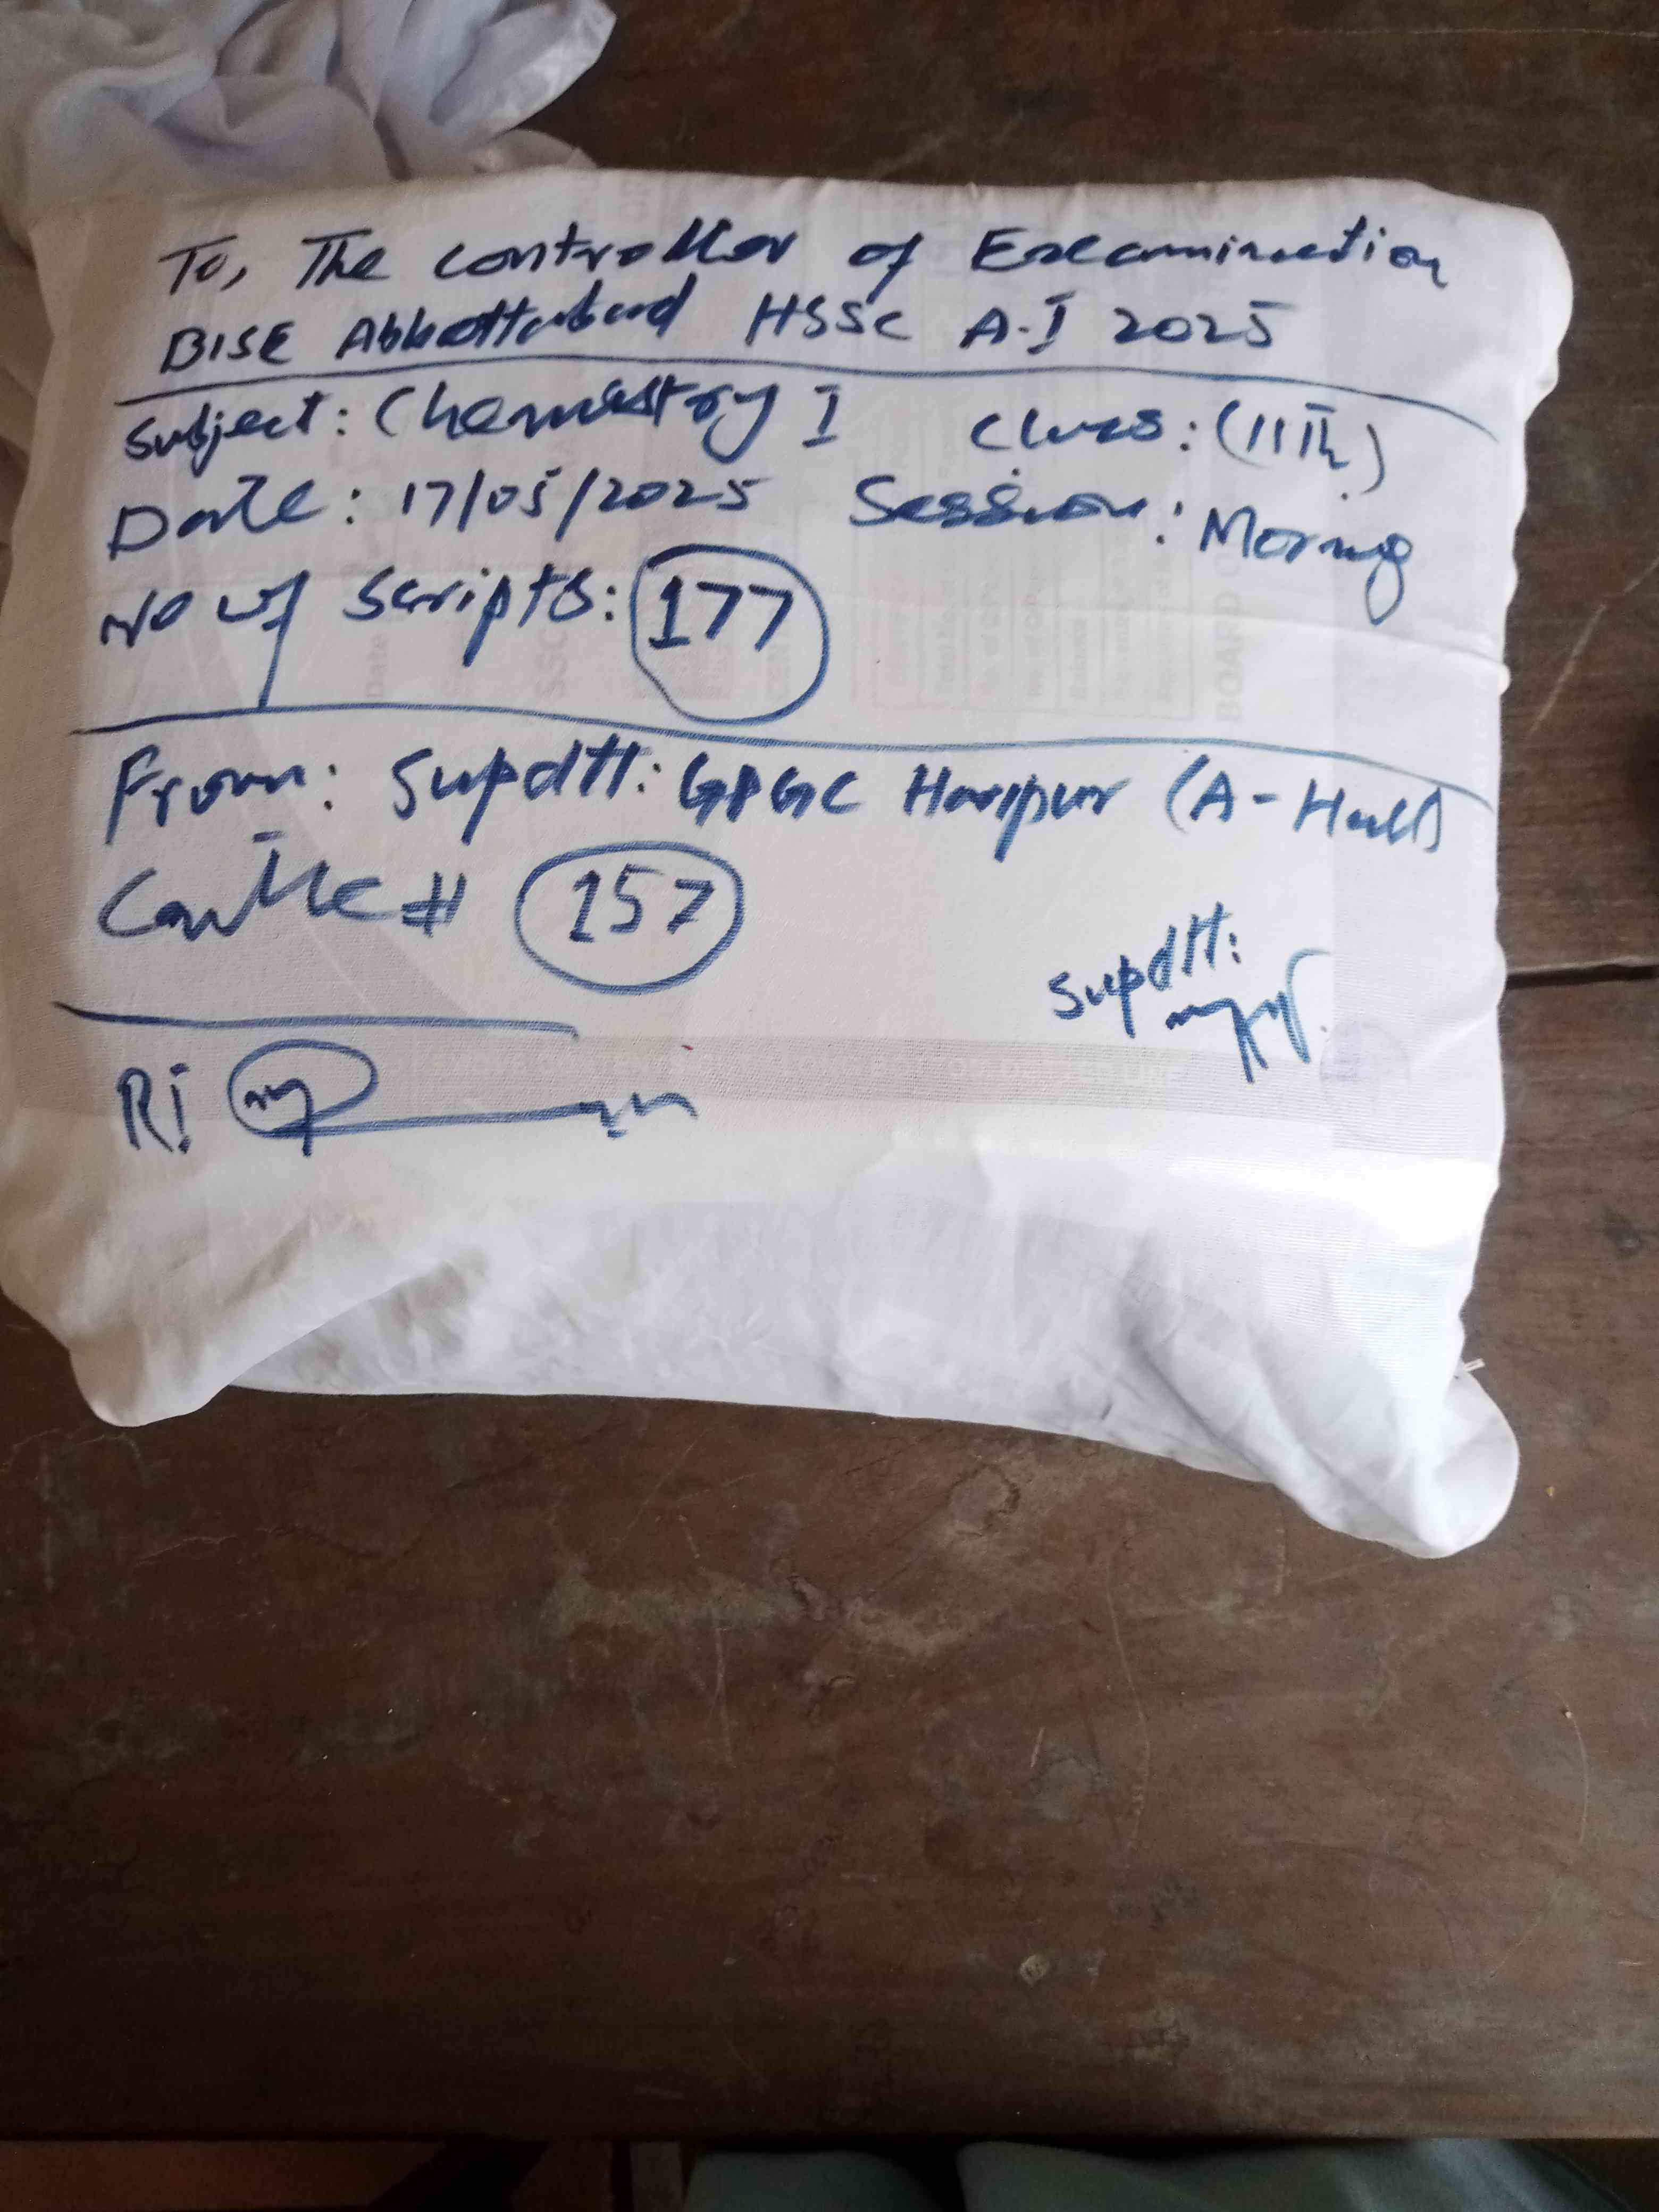 To, The Controller of Examination
BISE Abbottabad HSSC A-I 2025
Subject: Chemistry I Class: (11th)
Date: 17/05/2025 Session: Morning
No of Scripts: 177
From: Supdtt: GPGC Haripur (A-Hall)
Centre # 157
Supdtt:
RI
BOARD